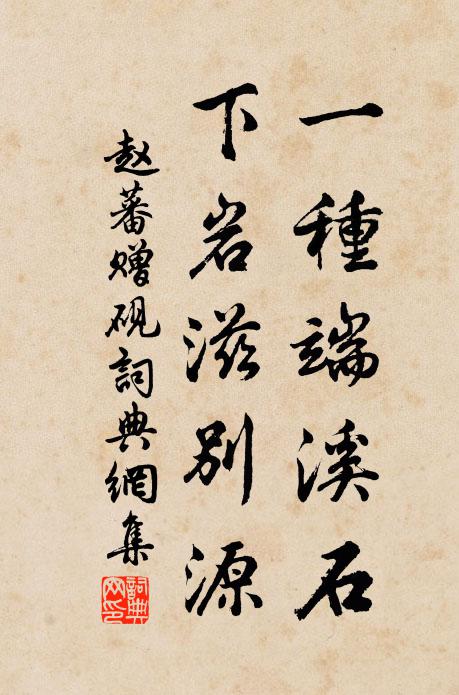 一種端溪石
下岩滋别源
赵蕃赠硯詞典網集
詞典网印